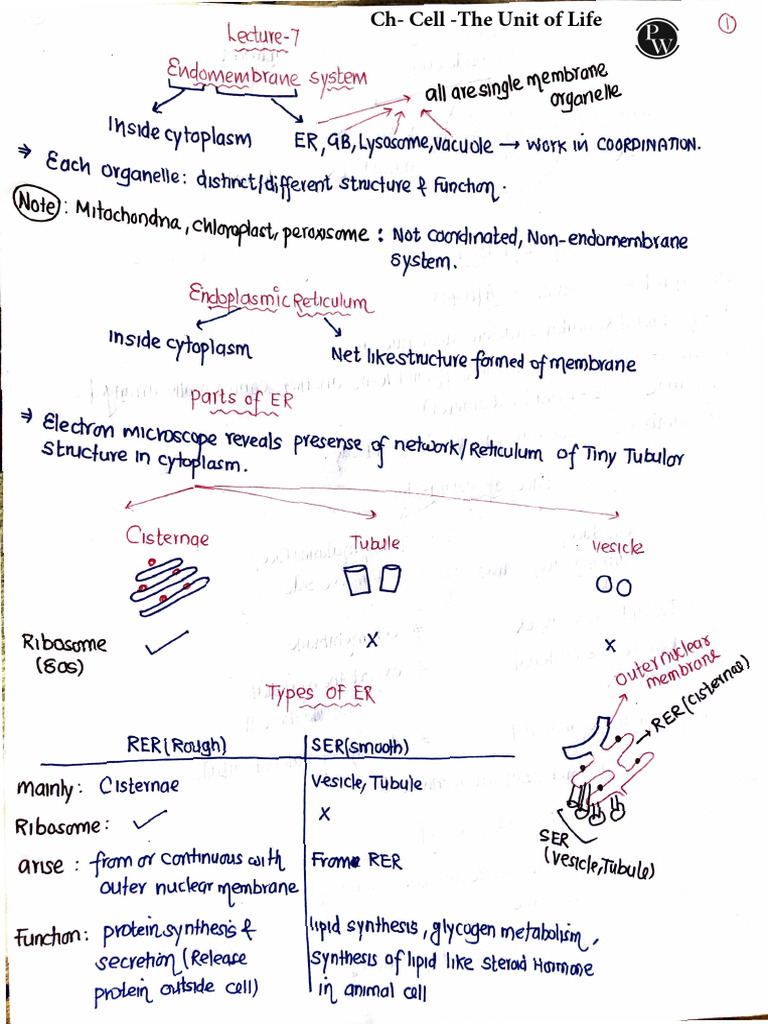 Ch- Cell -The Unit of Life
PW
1
Lecture-7
Endomembrane system
all are single membrane
organelle
Inside cytoplasm
ER, GB, Lysosome, Vacuole → WORK IN COORDINATION.
⇒ Each organelle: distinct/different structure & Function.
Note: Mitochondria, chloroplast, peroxisome : Not coordinated, Non-endomembrane
system.
Endoplasmic Reticulum
Inside cytoplasm
Net like structure formed of membrane
Parts of ER
⇒ Electron microscope reveals presense of network/Reticulum of Tiny Tubulor
structure in cytoplasm.
Cisternae Tubule Vesicle
Ribosome ✓ X X
(80s)
Outer nuclear
membrane
→ RER (Cisternae)
SER
(Vesicle, Tubule)
Types of ER
RER (Rough) SER (smooth)
mainly: Cisternae Vesicle, Tubule
Ribosome: ✓ X
arise : from or continuous with From RER
outer nuclear membrane
Function: protein synthesis & lipid synthesis, glycogen metabolism,
secretion (Release synthesis of lipid like steroid Hormone
protein outside cell) in animal cell